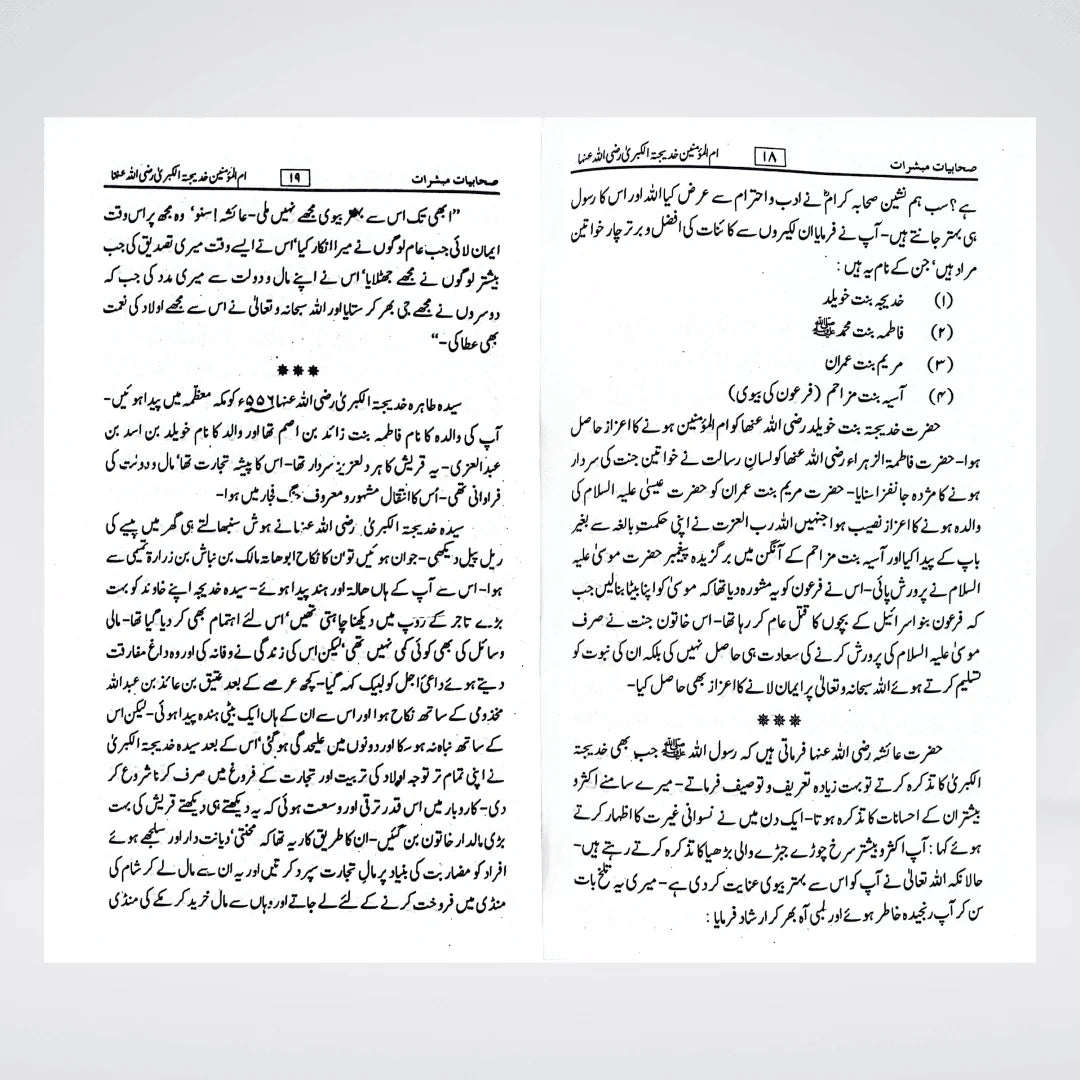 صحابیات مبشرات ۱۸ ام المؤمنین خدیجۃ الکبریٰ رضی اللہ عنہا
ہے؟ سب ہم نشین صحابہ کرامؓ نے ادب و احترام سے عرض کیا اللہ اور اس کا رسول
ہی بہتر جانتے ہیں- آپ نے فرمایا ان لکیروں سے کائنات کی افضل و برتر چار خواتین
مراد ہیں' جن کے نام یہ ہیں:
(۱) خدیجہ بنت خویلد
(۲) فاطمہ بنت محمد ﷺ
(۳) مریم بنت عمران
(۴) آسیہ بنت مزاحم (فرعون کی بیوی)
حضرت خدیجۃ بنت خویلد رضی اللہ عنہا کو ام المؤمنین ہونے کا اعزاز حاصل
ہوا- حضرت فاطمۃ الزہراء رضی اللہ عنہا کو لسان رسالت نے خواتین جنت کی سردار
ہونے کا مژدہ جانفزا سنایا- حضرت مریم بنت عمران کو حضرت عیسیٰ علیہ السلام کی
والدہ ہونے کا اعزاز نصیب ہوا جنہیں اللہ رب العزت نے اپنی حکمت بالغہ سے بغیر
باپ کے پیدا کیا اور آسیہ بنت مزاحم کے آنگن میں برگزیدہ پیغمبر حضرت موسیٰ علیہ
السلام نے پرورش پائی- اس نے فرعون کو یہ مشورہ دیا تھا کہ موسیٰ کو اپنا بیٹا بنالیں جب
کہ فرعون بنو اسرائیل کے بچوں کا قتل عام کر رہا تھا- اس خاتون جنت نے صرف
موسیٰ علیہ السلام کی پرورش کرنے کی سعادت ہی حاصل نہیں کی بلکہ ان کی نبوت کو
تسلیم کرتے ہوئے اللہ سبحانہ و تعالیٰ پر ایمان لانے کا اعزاز بھی حاصل کیا-
***
حضرت عائشہ رضی اللہ عنہا فرماتی ہیں کہ رسول اللہ ﷺ جب بھی خدیجۃ
الکبریٰ کا تذکرہ کرتے تو بہت زیادہ تعریف و توصیف فرماتے- میرے سامنے اکثر و
بیشتر ان کے احسانات کا تذکرہ ہوتا- ایک دن میں نے نسوانی غیرت کا اظہار کرتے
ہوئے کہا: آپ اکثر و بیشتر سرخ چوڑے جبڑے والی بڑھیا کا تذکرہ کرتے رہتے ہیں-
حالانکہ اللہ تعالیٰ نے آپ کو اس سے بہتر بیوی عنایت کر دی ہے- میری یہ تلخ بات
سن کر آپ رنجیدہ خاطر ہوئے اور لمبی آہ بھر کر ارشاد فرمایا:
صحابیات مبشرات ۱۹ ام المؤمنین خدیجۃ الکبریٰ رضی اللہ عنہا
"ابھی تک اس سے بہتر بیوی مجھے نہیں ملی- عائشہ! سنو' وہ مجھ پر اس وقت
ایمان لائی جب عام لوگوں نے میرا انکار کیا' اس نے ایسے وقت میری تصدیق کی جب
بیشتر لوگوں نے مجھے جھٹلایا' اس نے اپنے مال و دولت سے میری مدد کی جب کہ
دوسروں نے مجھے جی بھر کر ستایا اور اللہ سبحانہ و تعالیٰ نے اس سے مجھے اولاد کی نعمت
بھی عطا کی-"
***
سیدہ طاہرہ خدیجۃ الکبریٰ رضی اللہ عنہا ۵۵۶ء کو مکہ معظمہ میں پیدا ہوئیں-
آپ کی والدہ کا نام فاطمہ بنت زائد بن اصم تھا اور والد کا نام خویلد بن اسد بن
عبدالعزی- یہ قریش کا ہر دلعزیز سردار تھا- اس کا پیشہ تجارت تھا' مال و دولت کی
فراوانی تھی- اُس کا انتقال مشہور و معروف جنگ فجار میں ہوا-
سیدہ خدیجۃ الکبریٰ رضی اللہ عنہا نے ہوش سنبھالتے ہی گھر میں پیسے کی
ریل پیل دیکھی- جوان ہوئیں تو ان کا نکاح ابوھالہ مالک بن نباش بن زرارۃ تمیمی سے
ہوا- اس سے آپ کے ہاں ھالۃ اور ہند پیدا ہوئے- سیدہ خدیجہ اپنے خاوند کو بہت
بڑے تاجر کے روپ میں دیکھنا چاہتی تھیں' اس لئے اہتمام بھی کر دیا گیا تھا- مالی
وسائل کی بھی کوئی کمی نہیں تھی' لیکن اس کی زندگی نے وفا نہ کی اور وہ داغ مفارقت
دیتے ہوئے داعی اجل کو لبیک کہہ گیا- کچھ عرصے کے بعد عتیق بن عائذ بن عبداللہ
مخذومی کے ساتھ نکاح ہوا اور اس سے ان کے ہاں ایک بیٹی ہندہ پیدا ہوئی- لیکن اس
کے ساتھ نباہ نہ ہو سکا اور دونوں میں علیحدگی ہو گئی' اس کے بعد سیدہ خدیجۃ الکبریٰ
نے اپنی تمام تر توجہ اولاد کی تربیت اور تجارت کے فروغ میں صرف کرنا شروع کر
دی- کاروبار میں اس قدر ترقی اور وسعت ہوئی کہ یہ دیکھتے ہی دیکھتے قریش کی بہت
بڑی مالدار خاتون بن گئیں- ان کا طریق کار یہ تھا کہ محنتی' دیانت دار اور سلجھے ہوئے
افراد کو مضاربت کی بنیاد پر مال تجارت سپرد کرتیں اور یہ ان سے مال لے کر شام کی
منڈی میں فروخت کرنے کے لئے لے جاتے اور وہاں سے مال خرید کر مکے کی منڈی